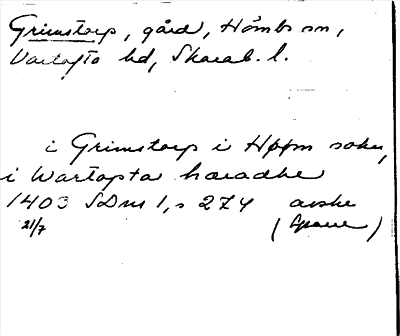 Grimstorp, gård, Hömbs sn,
Vartofta hd, Skarab. l.
i Grimstorp i Høøm sokn,
i Wartopta haradhe
1403 SDns 1, s 274 avskr
21/7